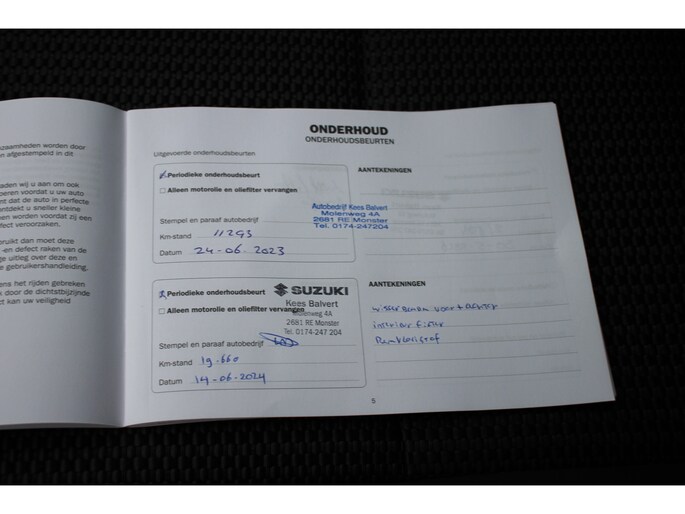 nzaamheden worden door
n afgestempeld in dit
aden wij u aan om ook
oeren voordat u uw auto
nt dat de auto in perfecte
ontdekt u sneller kleine
nen worden voordat zij een
fect veroorzaken.
eruikt dan moet deze
-en defect raken van de
ge uitleg over deze en
e gebruikershandleiding.
ens het rijden gebreken
k door de dichtstbijzijnde
ct kan uw veiligheid
ONDERHOUD
ONDERHOUDSBEURTEN
Uitgevoerde onderhoudsbeurten
Periodieke onderhoudsbeurt
Alleen motorolie en oliefilter vervangen
Autobedrijf Kees Balvert
Molenweg 4A
2681 RE Monster
Tel. 0174-247204
Stempel en paraaf autobedrijf
Km-stand 11293
Datum 24-06-2023
AANTEKENINGEN
Periodieke onderhoudsbeurt
Alleen motorolie en oliefilter vervangen
SUZUKI
Kees Balvert
Molenweg 4A
2681 RE Monster
Tel. 0174-247 204
Stempel en paraaf autobedrijf
Km-stand 19.660
Datum 14-06-2024
AANTEKENINGEN
interieur filter
5